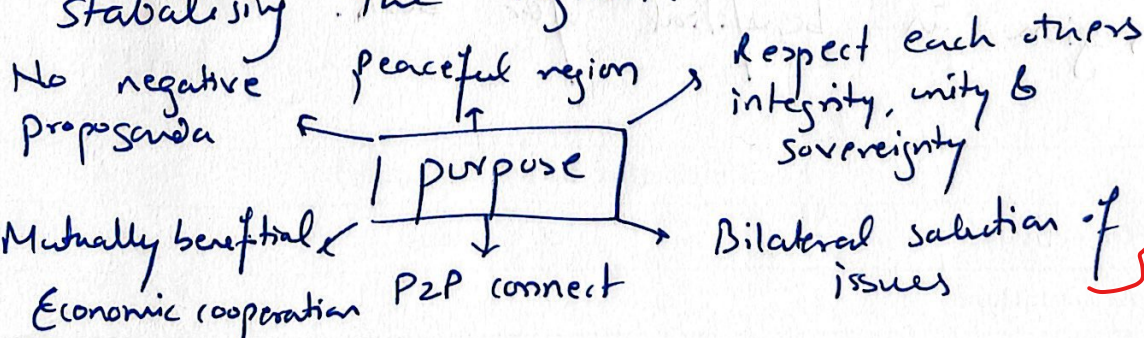 Stabalising. The
No negative
proposanda
peaceful region
Respect each others
integrity, unity &
sovereignty
purpose
Mutually benefitial
Economic cooperation
P2P connect
Bilateral solution of
issues